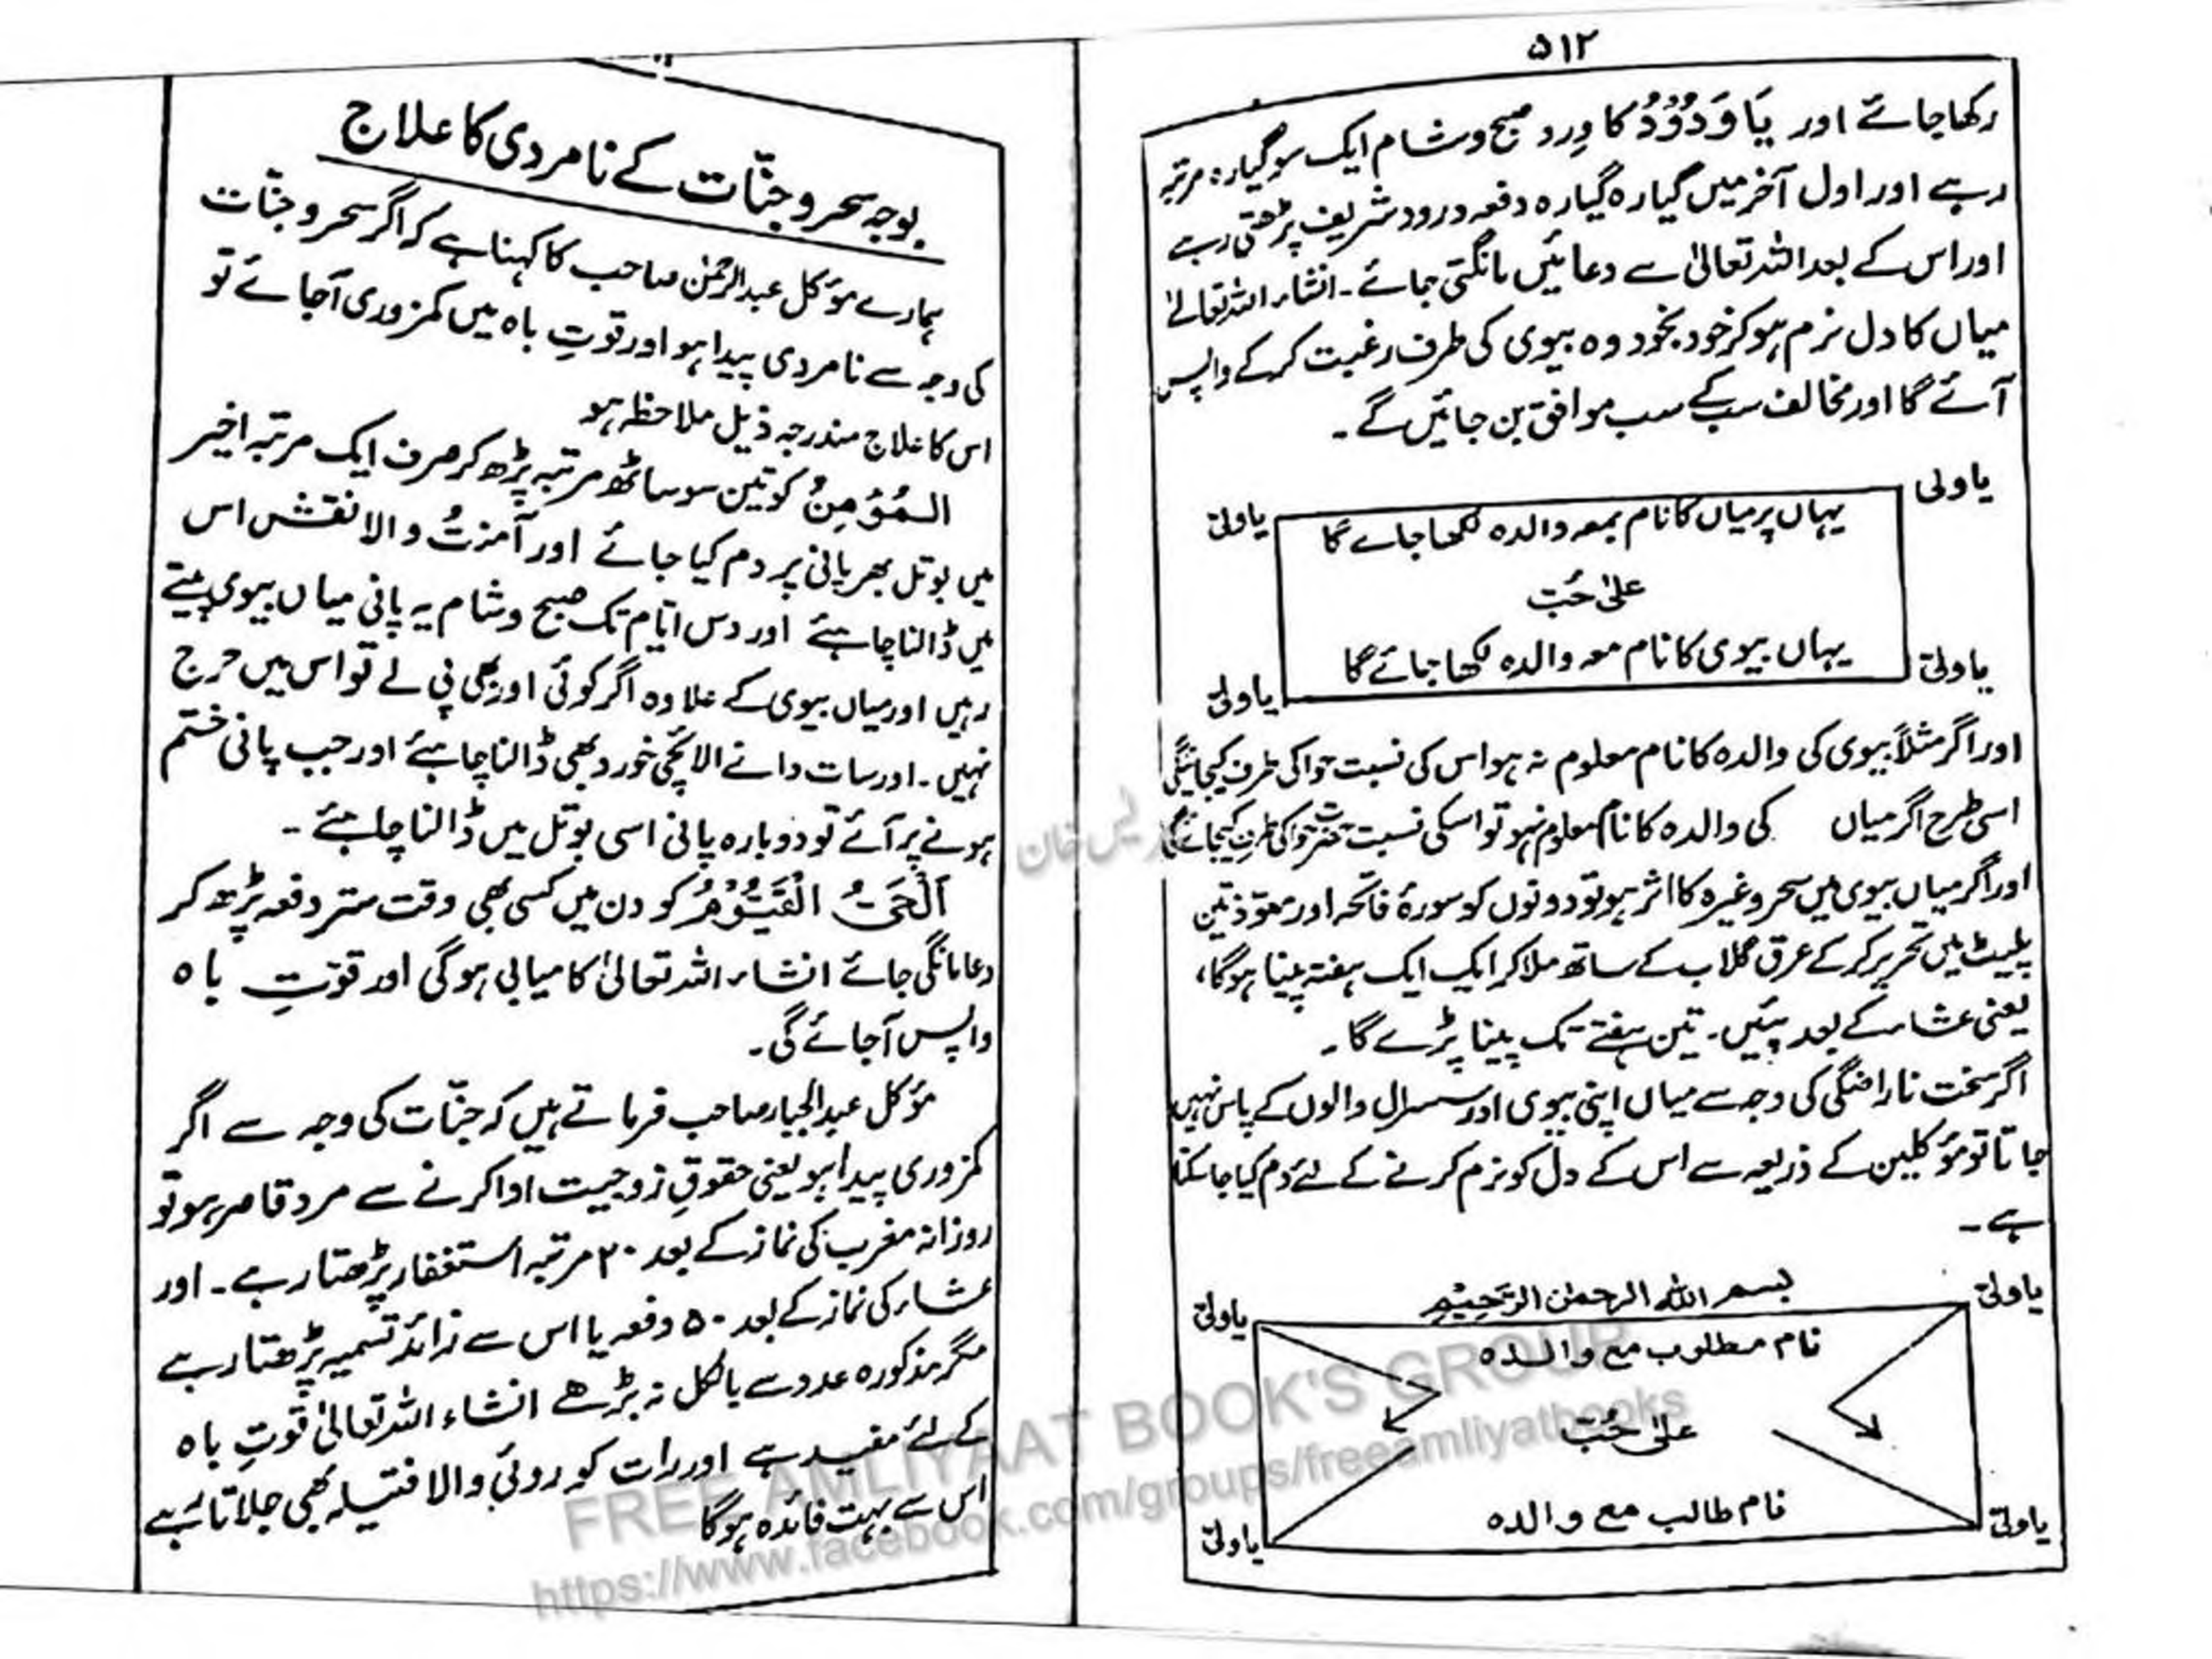 ۵۱۲
رکھا جائے اور یَا وَدُوْدُ کا وِرد صبح و شام ایک سو گیارہ مرتبہ
رہے اور اول آخر میں گیارہ گیارہ دفعہ درود شریف پڑھتی رہے
اور اس کے بعد اللہ تعالیٰ سے دعائیں مانگتی جائے۔ انشاء اللہ تعالیٰ
میاں کا دل نرم ہو کر خود بخود وہ بیوی کی طرف رغبت کر کے واپس
آئے گا اور مخالف سب کے سب موافق بن جائیں گے۔
یا ولی
یا ولی
یہاں پر میاں کا نام بمعہ والدہ لکھا جائے گا
علیٰ حُبّ
یہاں بیوی کا نام معہ والدہ لکھا جائے گا
یا ولی
یا ولی
اور اگر مثلاً بیوی کی والدہ کا نام معلوم نہ ہو اس کی نسبت حوا کی طرف کیجائیگی
اسی طرح اگر میاں کی والدہ کا نام معلوم نہو تو اسکی نسبت حضرت حوا کی طرف کیجائے گی
اور اگر میاں بیوی میں سحر وغیرہ کا اثر ہو تو دونوں کو سورۂ فاتحہ اور معوّذتین
پلیٹ میں تحریر کر کے عرق گلاب کے ساتھ ملا کر ایک ایک ہفتہ پینا ہوگا،
یعنی عشاء کے بعد پئیں۔ تین ہفتے تک پینا پڑے گا۔
اگر سخت ناراضگی کی وجہ سے میاں اپنی بیوی اور سسرال والوں کے پاس نہیں
جاتا تو مؤکلین کے ذریعہ سے اس کے دل کو نرم کرنے کے لئے دم کیا جا سکتا
ہے۔
بسم اللہ الرحمٰن الرَّحِیْمِ
یا ولی
یا ولی
نام مطلوب مع والدہ
علیٰ حُبّ
نام طالب مع والدہ
یا ولی
یا ولی
بوجہ سحر و جنّات کے نامردی کا علاج
ہمارے مؤکل عبدالرحمٰن صاحب کا کہنا ہے کہ اگر سحر و جنّات
کی وجہ سے نامردی پیدا ہو اور قوتِ باہ میں کمزوری آجائے تو
اس کا علاج مندرجہ ذیل ملاحظہ ہو
المُؤْمِنُ کو تین سو ساٹھ مرتبہ پڑھ کر صرف ایک مرتبہ اخیر
میں بوتل بھر پانی پر دم کیا جائے اور آمنتُ والا نقش اس
میں ڈالنا چاہئے اور دس ایّام تک صبح و شام یہ پانی میاں بیوی پیتے
رہیں اور میاں بیوی کے علاوہ اگر کوئی اور بھی پی لے تو اس میں حرج
نہیں۔ اور سات دانے الائچی خورد بھی ڈالنا چاہئے اور جب پانی ختم
ہونے پر آئے تو دوبارہ پانی اسی بوتل میں ڈالنا چاہئے۔
اَلْحَیُّ الْقَیُّوْمُ کو دن میں کسی بھی وقت ستر دفعہ پڑھ کر
دعا مانگی جائے انشاء اللہ تعالیٰ کامیابی ہوگی اور قوّتِ باہ
واپس آجائے گی۔
مؤکل عبدالجبار صاحب فرماتے ہیں کہ جنّات کی وجہ سے اگر
کمزوری پیدا ہو یعنی حقوقِ زوجیت ادا کرنے سے مرد قاصر ہو تو
روزانہ مغرب کی نماز کے بعد ۲۰ مرتبہ استغفار پڑھتا رہے۔ اور
عشاء کی نماز کے بعد ۵۰ دفعہ یا اس سے زائد تسمیہ پڑھتا رہے
مگر مذکورہ عدد سے بالکل نہ بڑھے انشاء اللہ تعالیٰ قوتِ باہ
کے لئے مفید ہے اور رات کو روئی والا فتیلہ بھی جلاتا رہے
اس سے بہت فائدہ ہوگا
FREE AMLIYAAT BOOK'S GROUP
https://www.facebook.com/groups/freeamliyatbooks